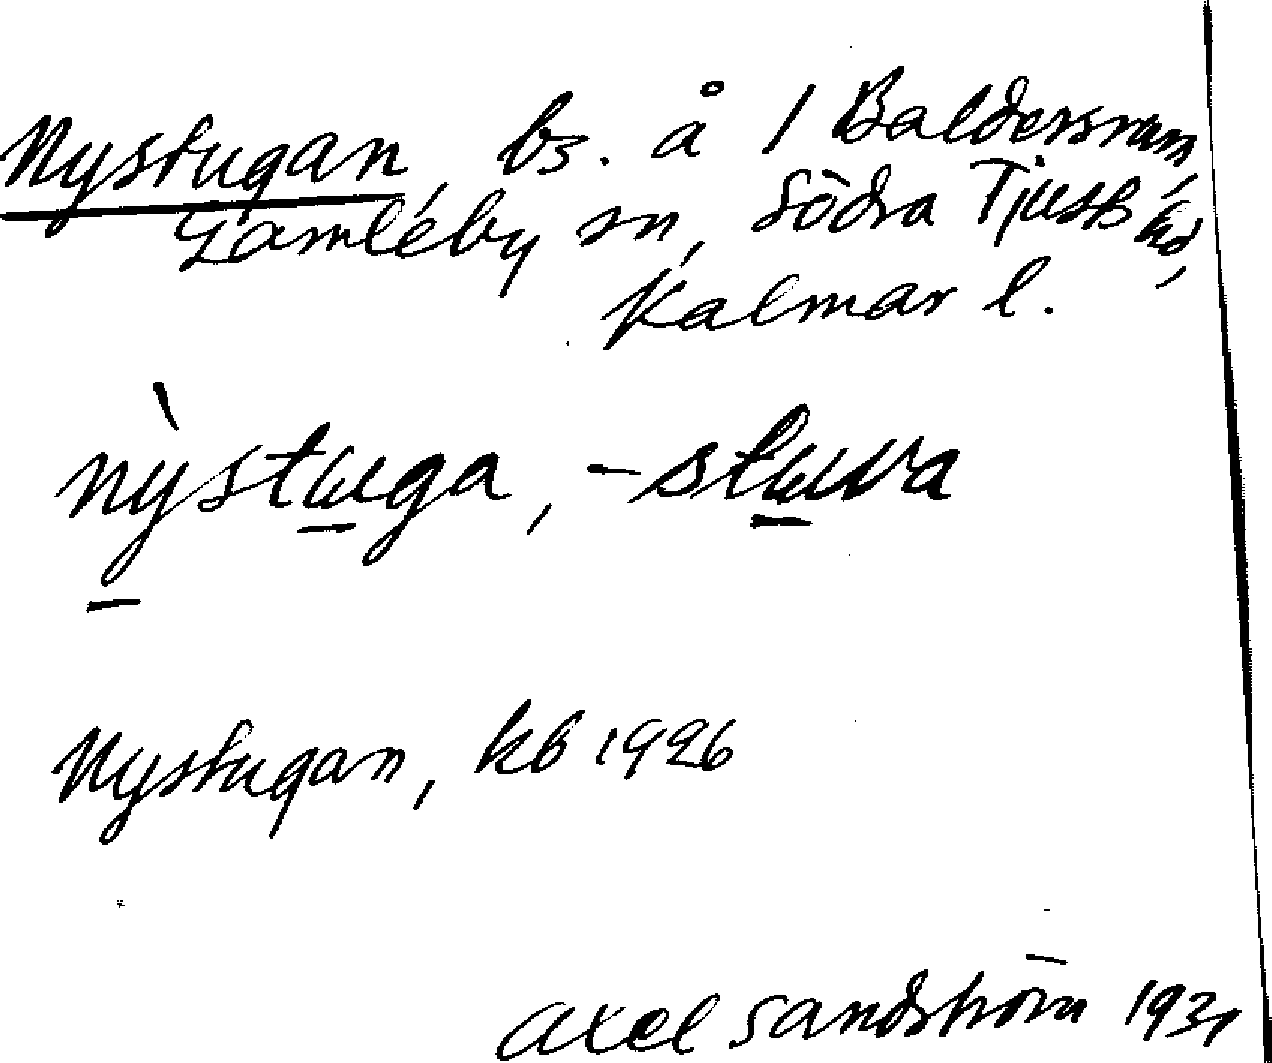 Nystugan, bs. å 1 Baldersrum,
Gamleby sn, Södra Tjusts hd,
Kalmar l.
nỳstuga, -stuva
Nystugan, kb 1926
Axel Sandström